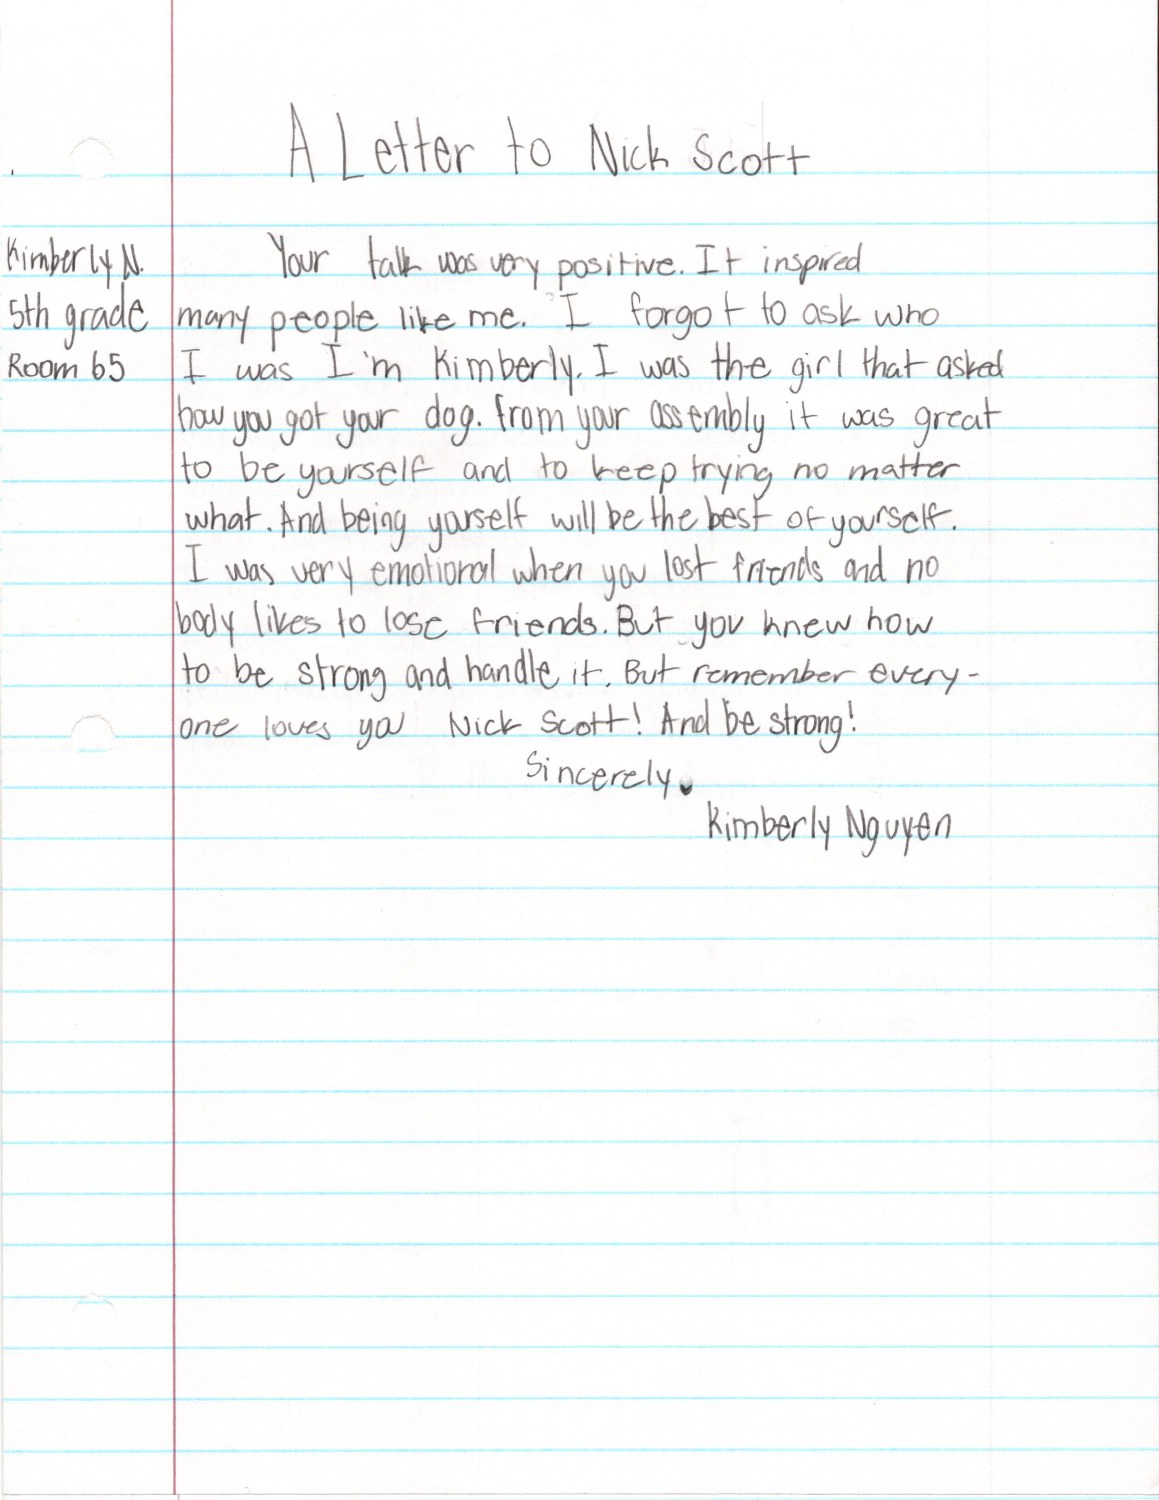 A Letter to Nick Scott
Kimberly N.
5th grade
Room 65
Your talk was very positive. It inspired
many people like me. I forgot to ask who
I was I'm Kimberly. I was the girl that asked
how you got your dog. from your assembly it was great
to be yourself and to keep trying no matter
what. And being yourself will be the best of yourself.
I was very emotional when you lost friends and no
body likes to lose friends. But you knew how
to be strong and handle it. But remember every-
one loves you Nick Scott! And be strong!
Sincerely,
Kimberly Nguyen